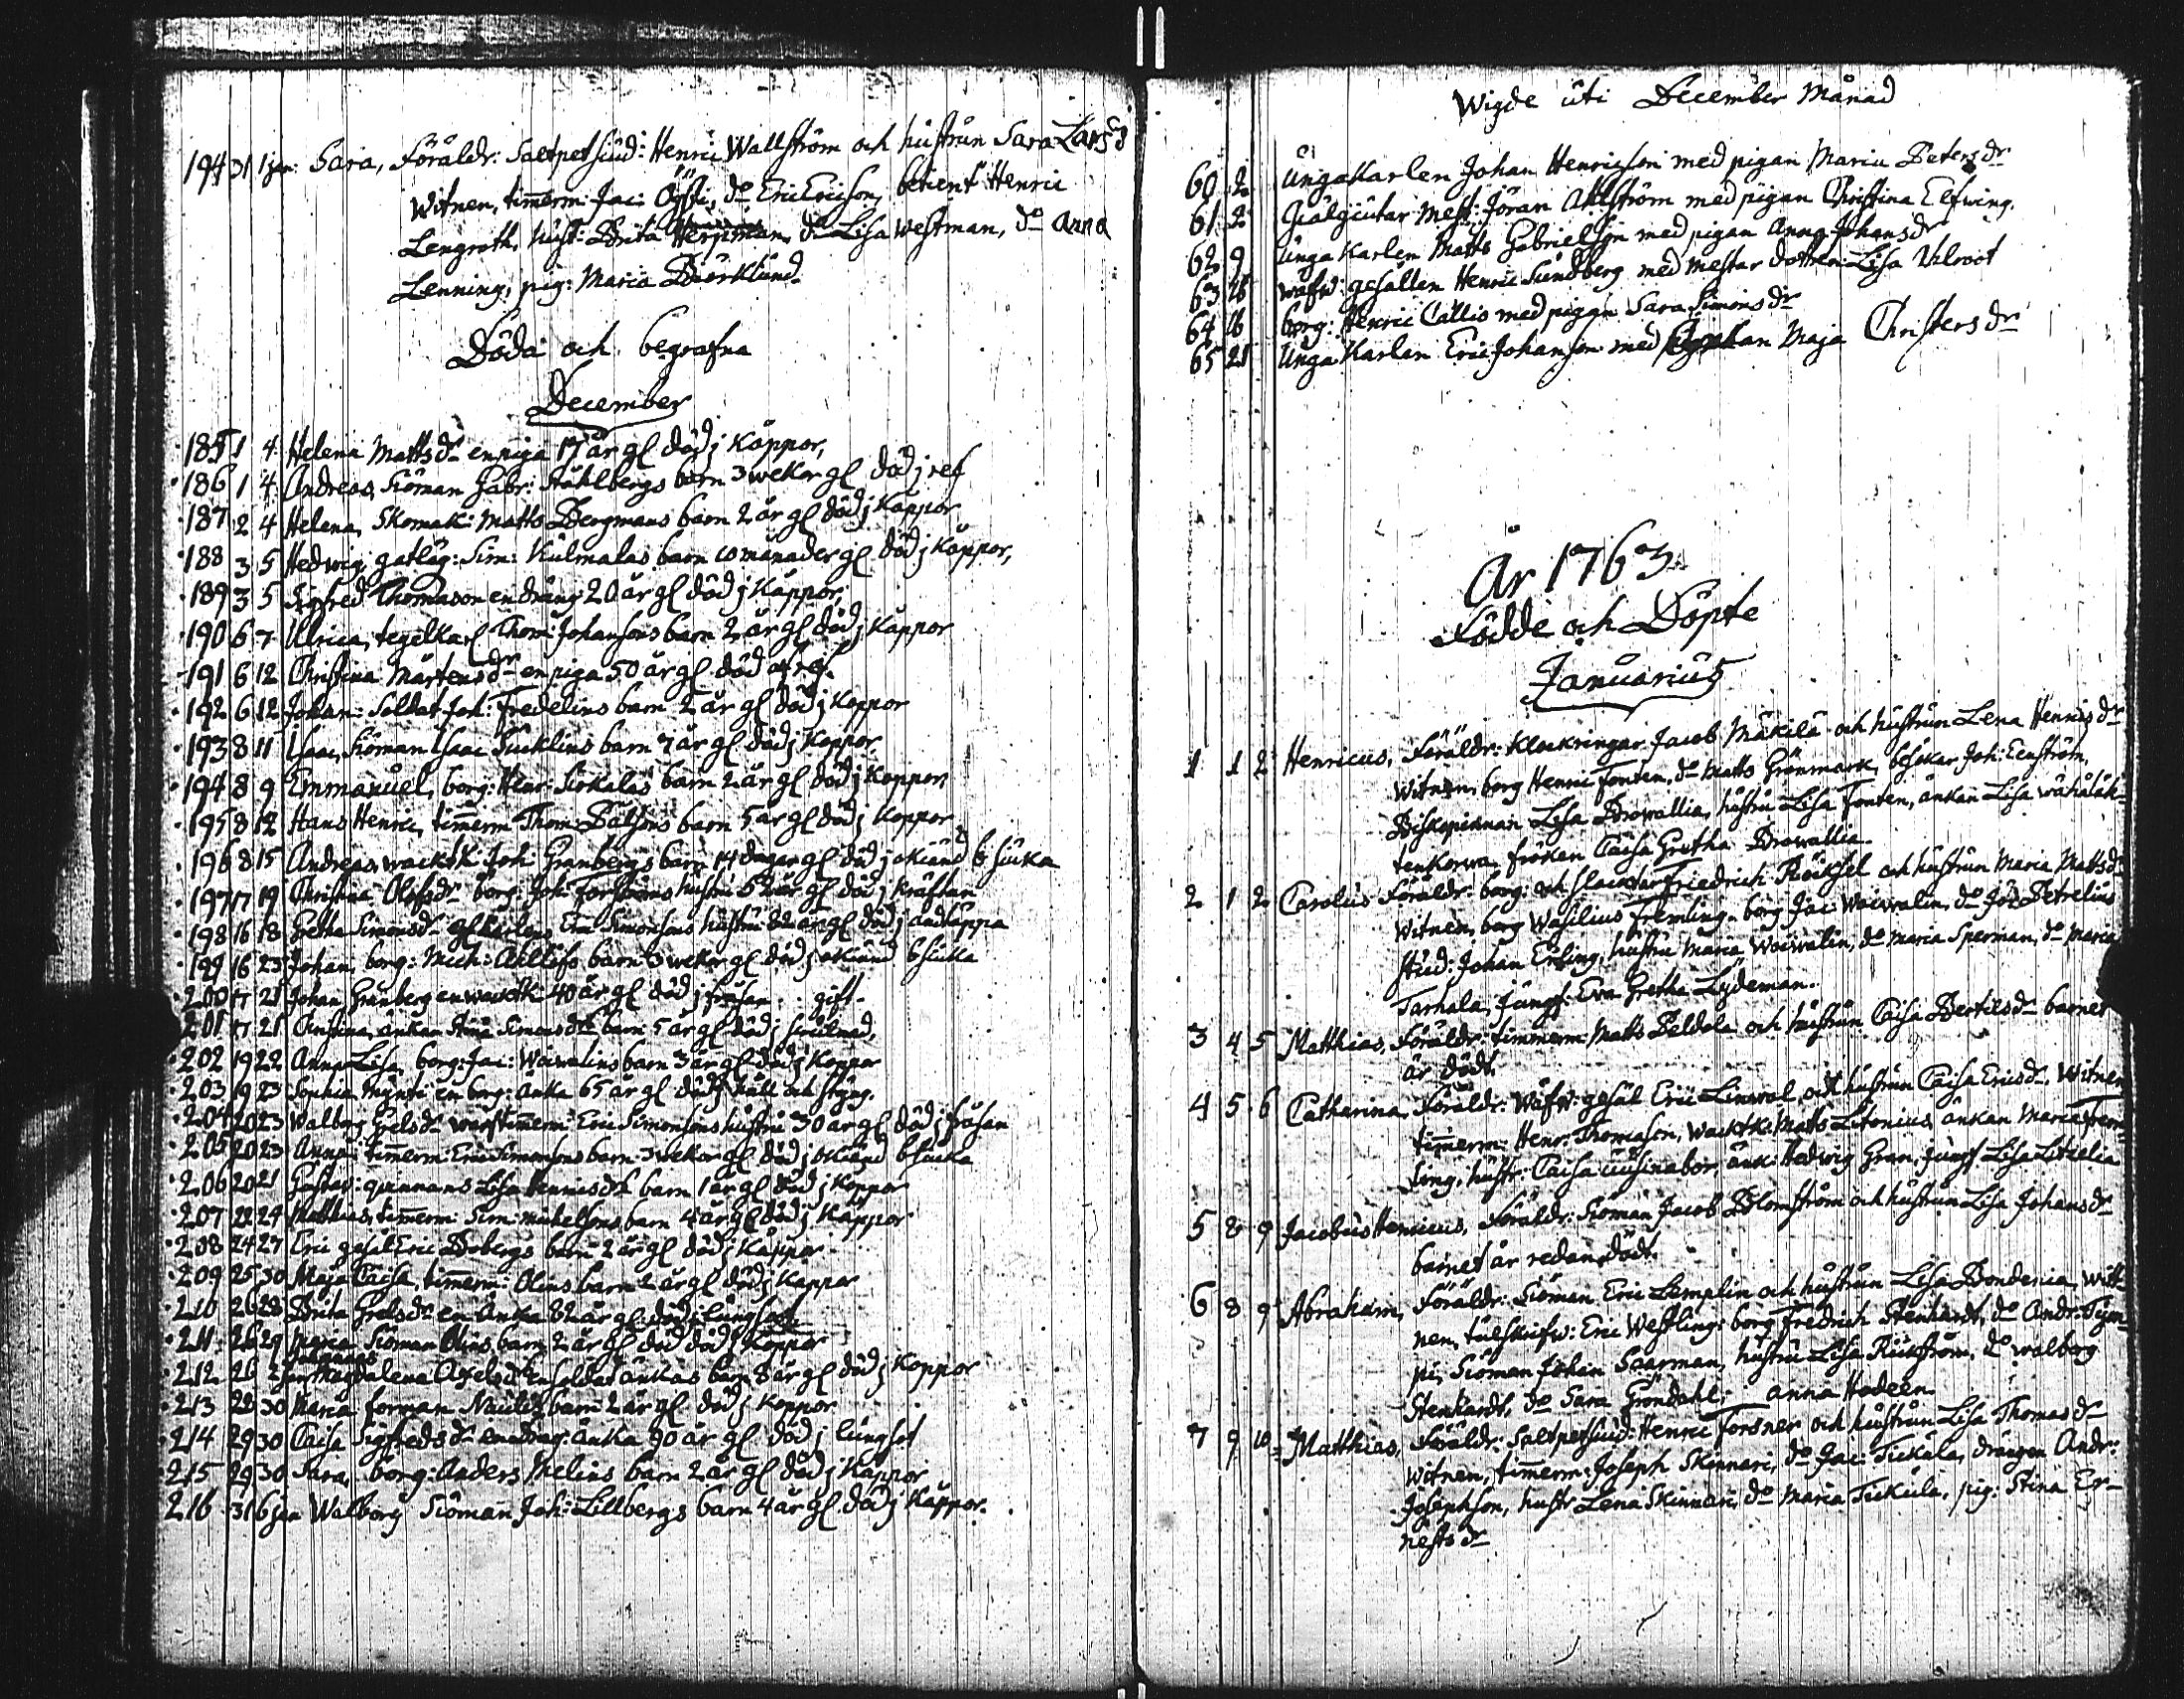 194 31 1jan: Sara, Föräldr: Saltpetsiud: Henric Wallström och hustrun Sara Larsd
Witnen, timerm: Jac: Öysti, do Eric Ericson, betient Henric
Lengroth, hust: Brita Werpman, do Lisa Westman, do Anna
Lenning, pig: Maria Biörklund.
Döda och begrafna
December
185 1 4 Helena Mattsdr en piga 17 år gl död j Koppor,
186 1 4 Andreas Siöman Gabr: Ståhlbergs barn 3 wekor gl död j ref
187 2 4 Helena, Skomak: Matts Bergmans barn 2 år gl död j Koppor
188 3 5 Hedwig, gatläg: Sim: Kulmalas barn 10 månader gl död j Koppor,
189 3 5 Sigfred Thomason en dräng 20 år gl död j Koppor,
190 6 7 Ulrica, tegelkarl Thom: Johansons barn 2 år gl död j Koppor
191 6 12 Christina Mårtensdr en piga 50 år gl död af ref.
192 6 12 Johan: Soldat Joh: Fredelins barn 2 år gl död j Koppor
193 8 11 Isaac, Siöman Isaac Sucklins barn 7 år gl död j Koppor
194 8 9 Emmanuel, borg: Henr: Sirkalas barn 2 år gl död j Koppor,
195 8 12 Hans Henric, timerm Thom: Pålsons barn 5 år gl död j Koppor
196 8 15 Andreas wacktk: Joh: Granbergs barn 14 dagar gl död j okiänd b siuka
197 17 19 Christina Olofsdr borg: Joh: Forströms hustru 52 år gl död j kräftan
198 16 18 Gretha Simonsdr Simonsons hustru 82 år gl död j andtäppa
199 16 23 Johan, borg: Mich: Ahllifs barn 3 wekor gl död j okiänd b siuka
200 17 21 Johan Granberg en wacktk 40 år gl död j fråsan. gift.
201 17 21 Christina, änkan Stina Simonsdrs barn 5 år gl död j
202 19 22 Anna Lisa, borg: Jac: Waiwalins barn 3 år gl död j Koppor
203 19 23 Sophia Mynti en borg: änka 65 år gl död j håll och styng.
204 20 23 Walborg Grelsdr warftimerm: Eric Simonsons hustru 30 år gl död j fråsan
205 20 23 Anna: timerm: Eric Simonsons barn 3 wekor gl död j okiänd b siuka
206 20 21 Gustav: Lisa Hennisdrs barn 1 år gl död j Koppor
207 22 24 Matthias, timerm: Sim: Michelsons barn 4 år gl död j Koppor
208 24 27 Eric gesäl Eric Bobergs barn 2 år gl död j Koppor
209 25 30 Maja Caisa timerm: Olins barn 2 år gl död j Koppor
210 26 28 Brita Grelsdr en änka 82 år gl död j lungsot
211 26 29 Maria Siöman Olins barn 2 år gl död död j Koppor
212 26 2jan Magdalena Axelsdr en soldat änkas barn 8 år gl död j Koppor
213 28 30 Maria forman barn 2 år gl död j Koppor
214 29 30 Caisa Sigfredsdr en änka 90 år gl död j lungsot
215 29 30 Sara, borg: Anders Melins barn 2 år gl död j Koppor
216 31 6 jan Walborg Siöman Joh: Lillbergs barn 4 år gl död j Koppor.
Wigde uti December Månad
60 2 Unga Karlen Johan Henricson med pigan Maria Petersdr
61 2 Giälgiutar mest: Jöran Ahlström med pigan Christina Elfwing.
62 9 Unga Karlen Matts Gabrielson med pigan Anna Johansdr
63 16 wäfw: gesällen Henric Sundberg med mestar dottren Lisa Ulroot
64 16 borg: Henric Callis med pigan Sara Simonsdr
65 21 Unga Karlen Eric Johanson med Maja Christersdr
År 1763
Födde och Döpte
Januarius
1 1 2 Henricus, Föräldr: Klockringar Jacob Mäkilä och hustrun Lena Hennisdr
Witnen, borg Henric Fonten, do Matts Grönmark, besökar Joh: Eenström,
Biskopinnan Lisa Browallia, hustru Lisa Fonten, änkan Lisa Wähäläh-
tenkorwa fröken Caisa Gretha Browallia.
2 1 2 Carolus Föräldr: borg: och slacktar Friedrich Röcksel och hustrun Maria Mattsdr
Witnen, borg Wasilius Fremling, borg Jac: Waiwalin, do Petrelius
stud: Johan Erling, hustru Maria Waiwalin, do Maria Sperman, do Maria
Tarhala, Jungf: Eva Gretha Lydeman.
3 4 5 Matthias, Föräldr: timmerm: Matts Peldola och hustrun Caisa Bertilsdr barnet
är dödt.
4 5 6 Catharina, Föräldr: Wäfw: gesäl Eric Linwal och hustrun Caisa Ericsdr, Witnen
timerm: Henr: Thomason, wacktk: Matts Litonius, änkan Maria Frem-
ling, hustr: Caisa Uusinabor, änk: Hedwig Gran, jungf Lisa Litzelia
5 8 9 Jacobus Henricus, Föräldr: Siöman Jacob Blomström och hustrun Lisa Johansdr
barnet är redan dödt.
6 8 9 Abraham, Föräldr: Siöman Eric Templin och hustrun Lisa Bondenia, witt-
nen, tulskrifw: Eric Westling: borg Fredrich Stenhardt, do Andr: Tejon-
pi, Siöman Johan Saarman, hustru Lisa Rikström, do Walborg
Stenhardt, do Sara Gröndahl: Anna Hadeen.
7 9 10 Matthias, Föräldr: Saltpetsiud: Henric Forsner och hustrun Lisa Thomasdr
Witnen, timerm: Joseph Skinnari, do Jac: Tickula, drängen Andr:
Josephson, hustr Lena Skinnari, do Maria Tickula, pig: Stina Er-
nestsdr